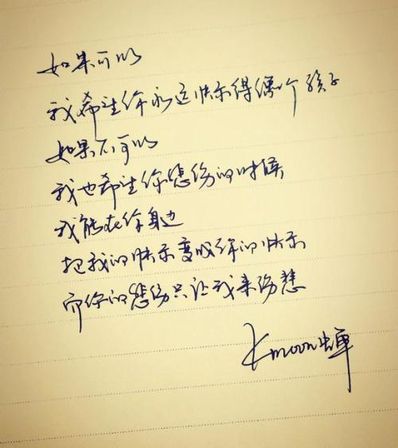 如果可以
我希望你永远快乐得像个孩子
如果不可以
我也希望你悲伤的时候
我能在你身边
把我的快乐变成你的快乐
而你的悲伤只让我来伤悲
moon